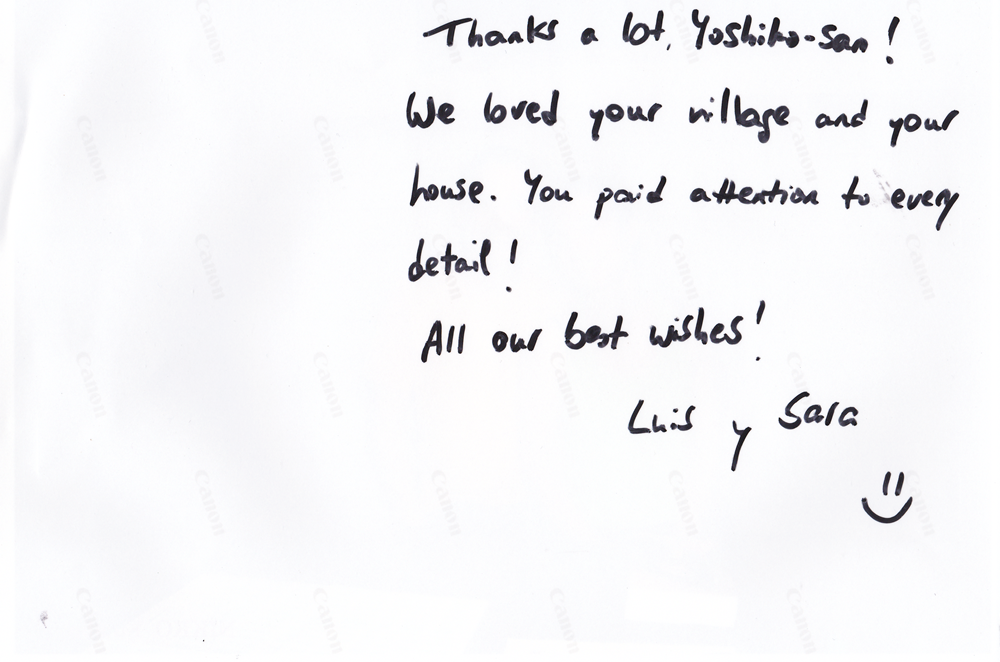 Thanks a lot, Yoshiko-san!
We loved your village and your
house. You paid attention to every
detail!
All our best wishes!
Luis y Sara